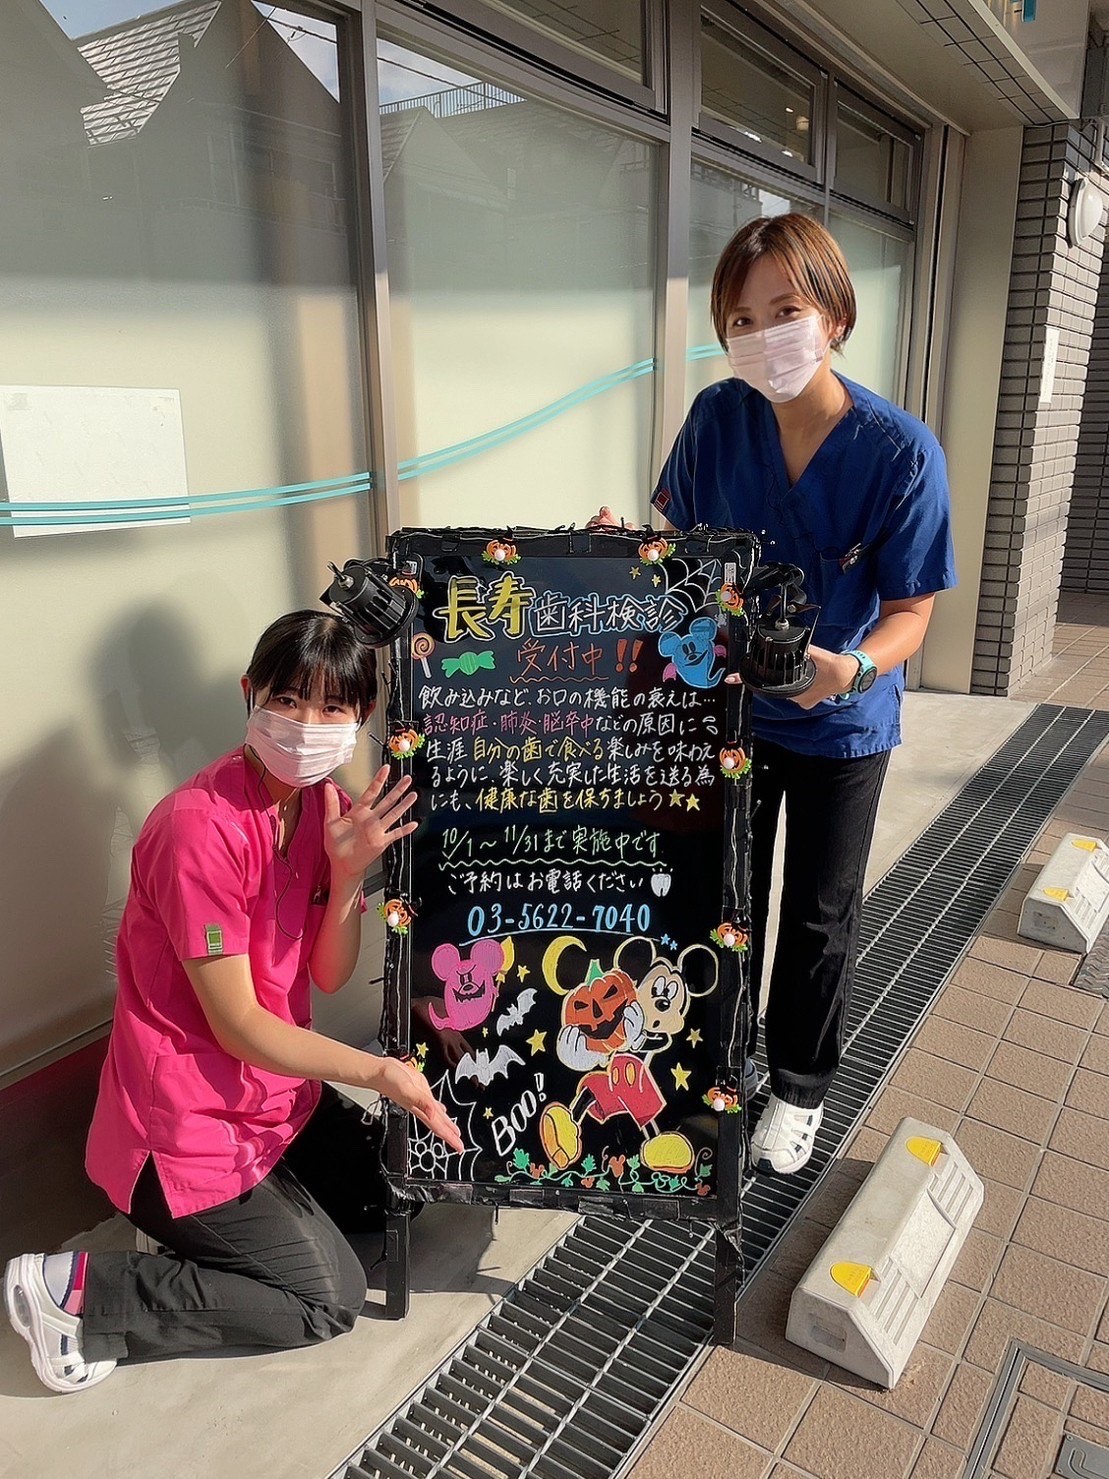 長寿歯科検診
受付中!!
飲み込みなど、お口の機能の衰えは…
認知症・肺炎・脳卒中などの原因に
生涯自分の歯で食べる楽しみを味わえ
るように、楽しく充実した生活を送る為
にも、健康な歯を保ちましょう
10/1～11/31まで実施中です
ご予約はお電話ください
03-5622-7040
BOO!